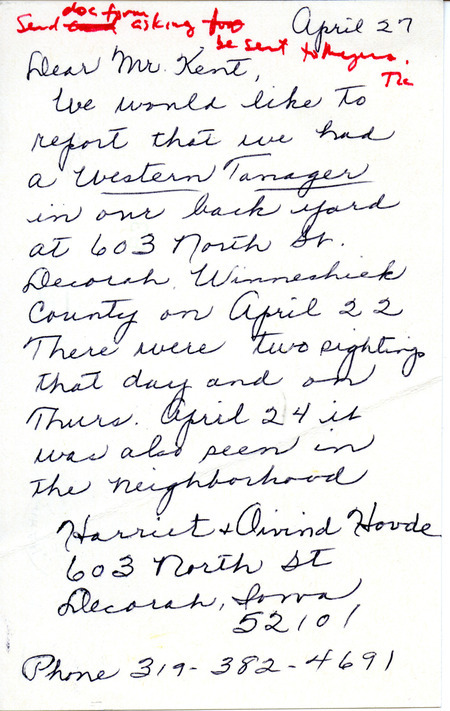 doc form
Send asking
be sent to
April 27
Dear Mr. Kent,
We would like to
report that we had
a Western Tanager
in our back yard
at 603 North St.
Decorah, Winneshiek
County on April 22
There were two sightings
that day and on
Thurs. April 24 it
was also seen in
the neighborhood
Harriet & Oivind Hovde
603 North St
Decorah, Iowa
52101
Phone 319-382-4691